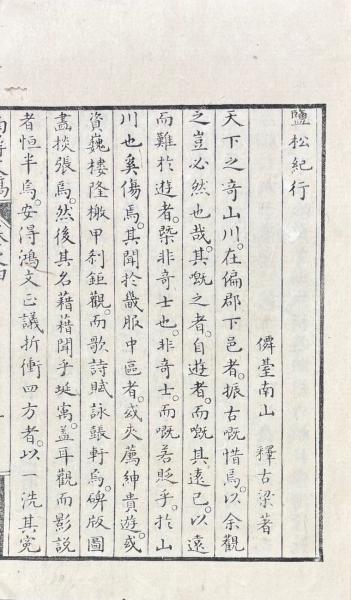 鹽松紀行
僊臺南山　釋古梁著
天下之奇山川。在偏郡下邑者。振古嘅惜焉。以余觀
之豈必然也哉。其嘅之者。自遊者。而嘅其遠已。以遠
而難於遊者。槩非奇士也。非奇士。而嘅若貶乎。於山
川也奚傷焉。其聞於畿服中區者。或夾薦紳貴遊。或
資巍樓隆橵甲刹鉅觀。而歌詩賦詠鋹軒焉。碑版圖
畫掞張焉。然後其名藉藉聞乎埏㝢。盖耳觀而影説
者恒半焉。安得鴻文正議折衝四方者。以一洗其寃